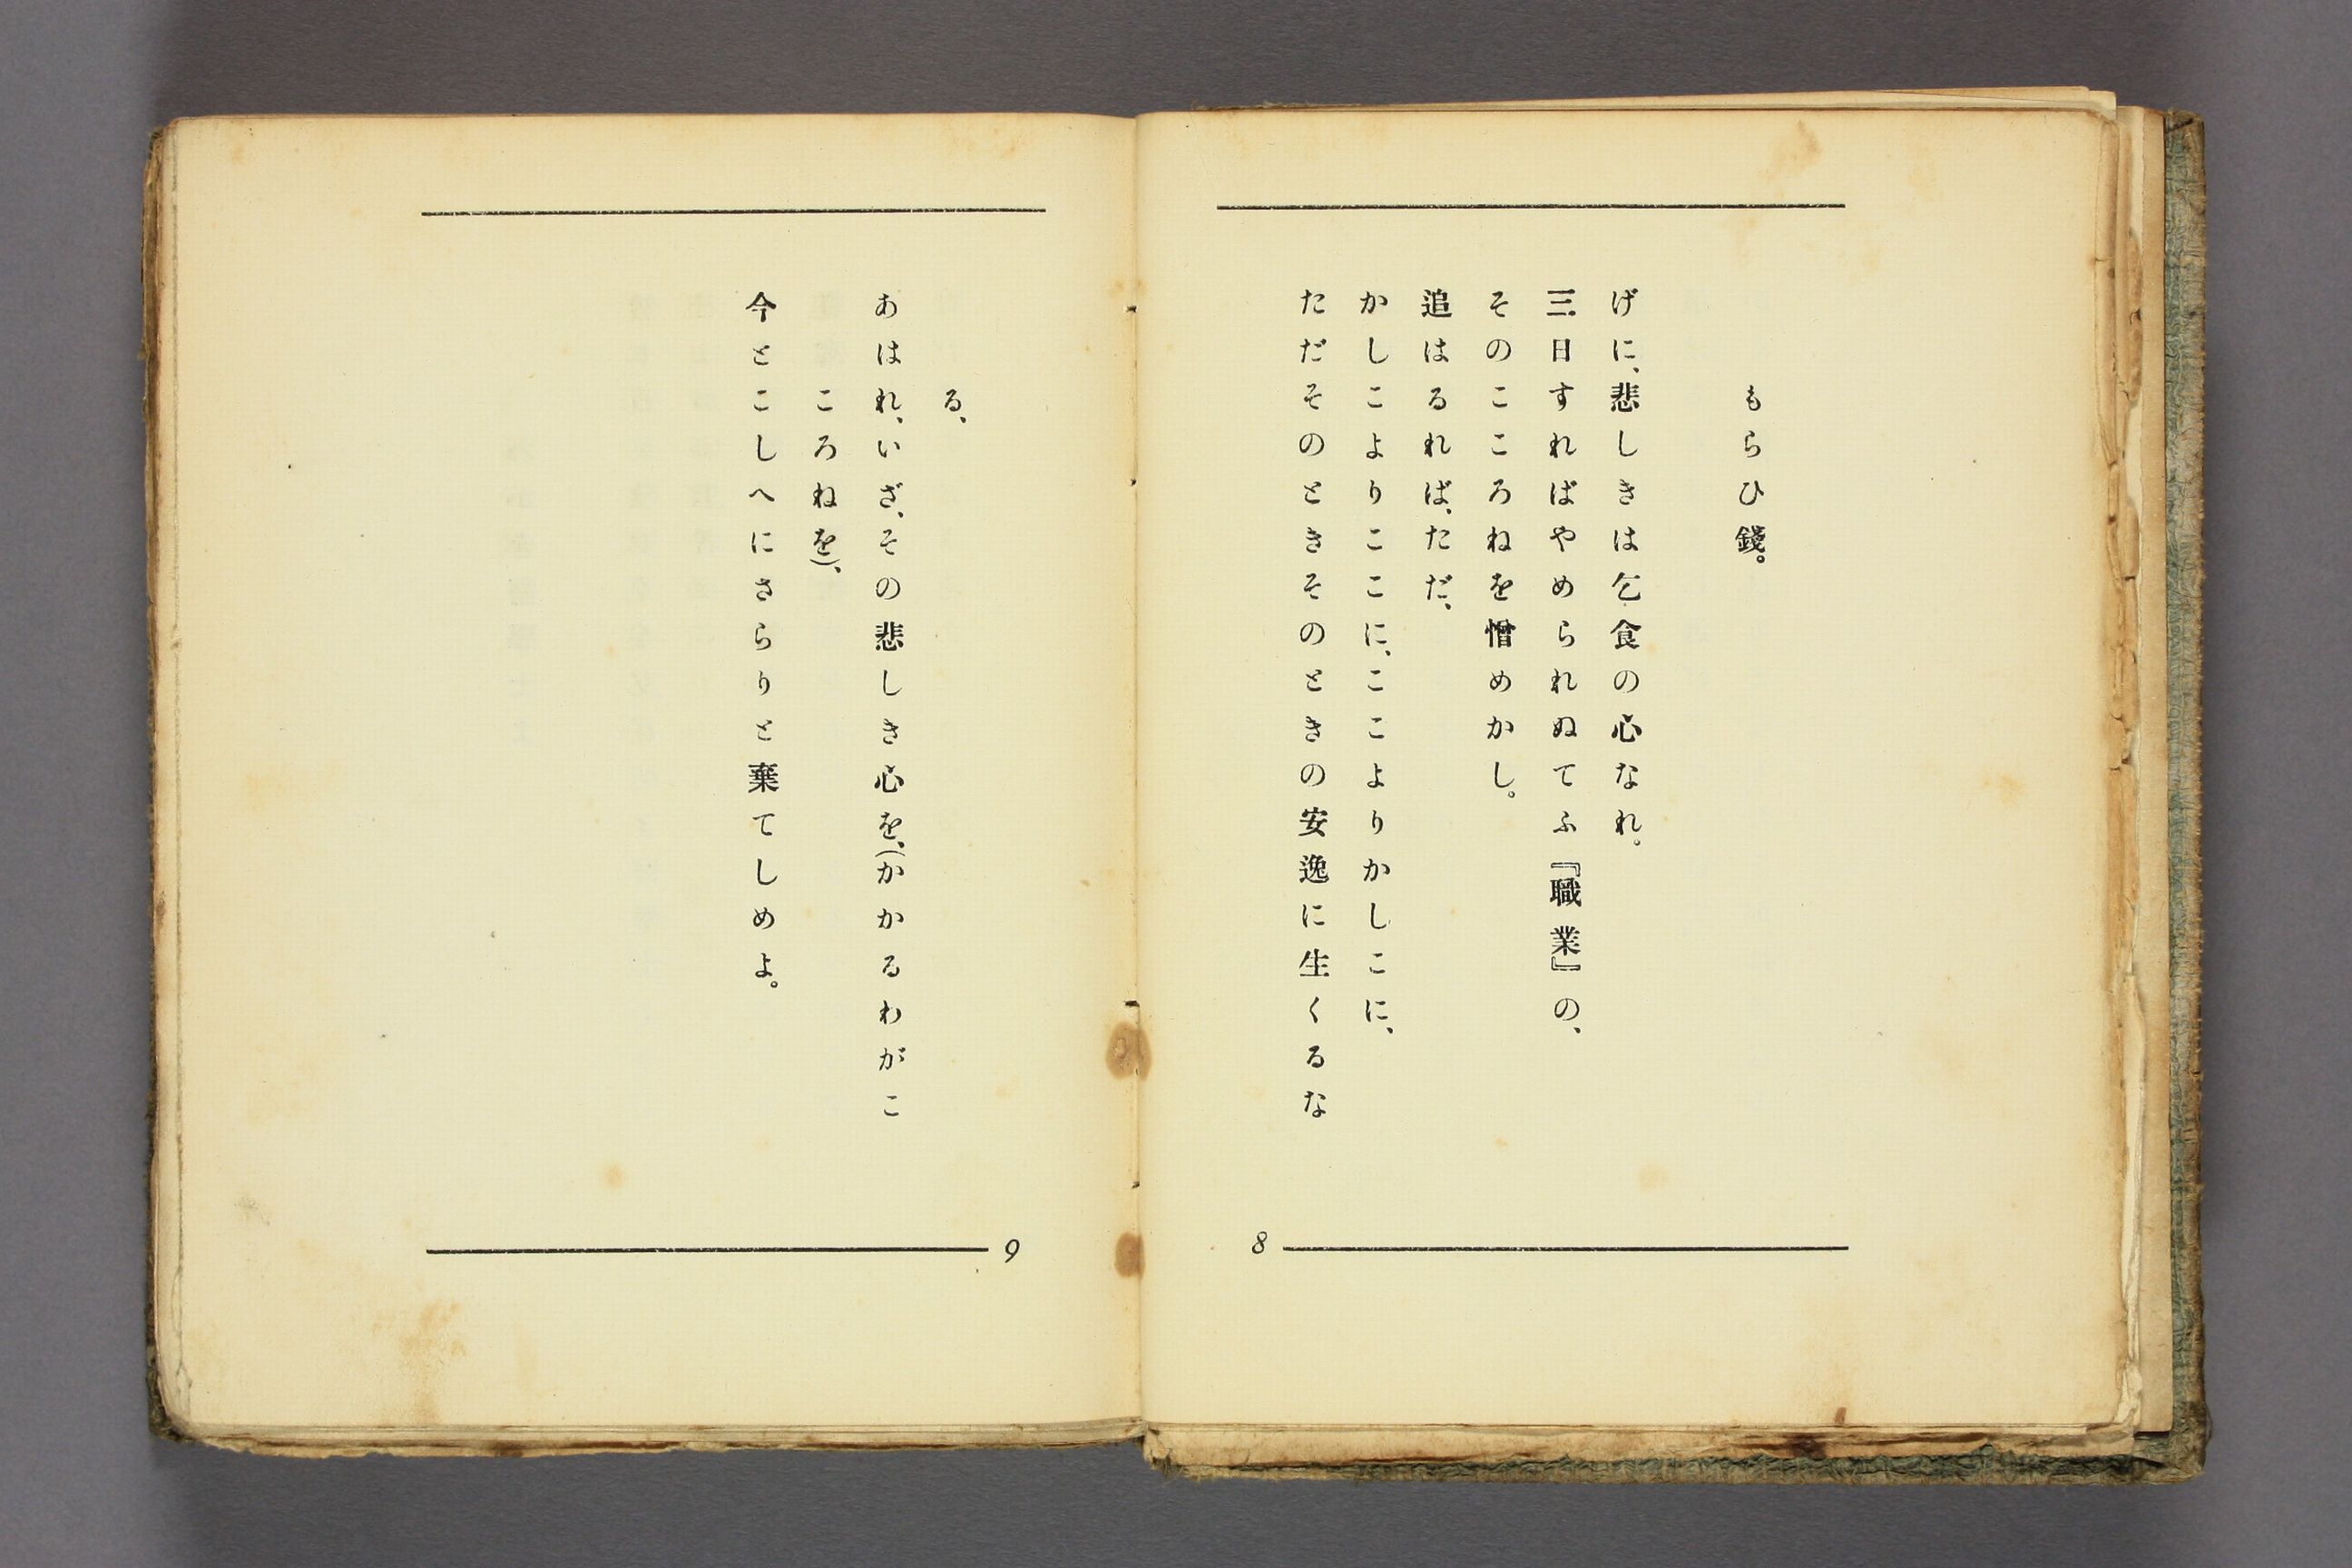 もらひ錢。
げに、悲しきは乞食の心なれ。
三日すればやめられぬてふ『職業』の、
そのこころねを憎めかし。
追はるれば、ただ、
かしこよりここに、ここよりかしこに、
ただそのときそのときの安逸に生くるな
8
る、
あはれ、いざ、その悲しき心を、(かかるわがこ
ころねを)、
今とこしへにさらりと棄てしめよ。
9